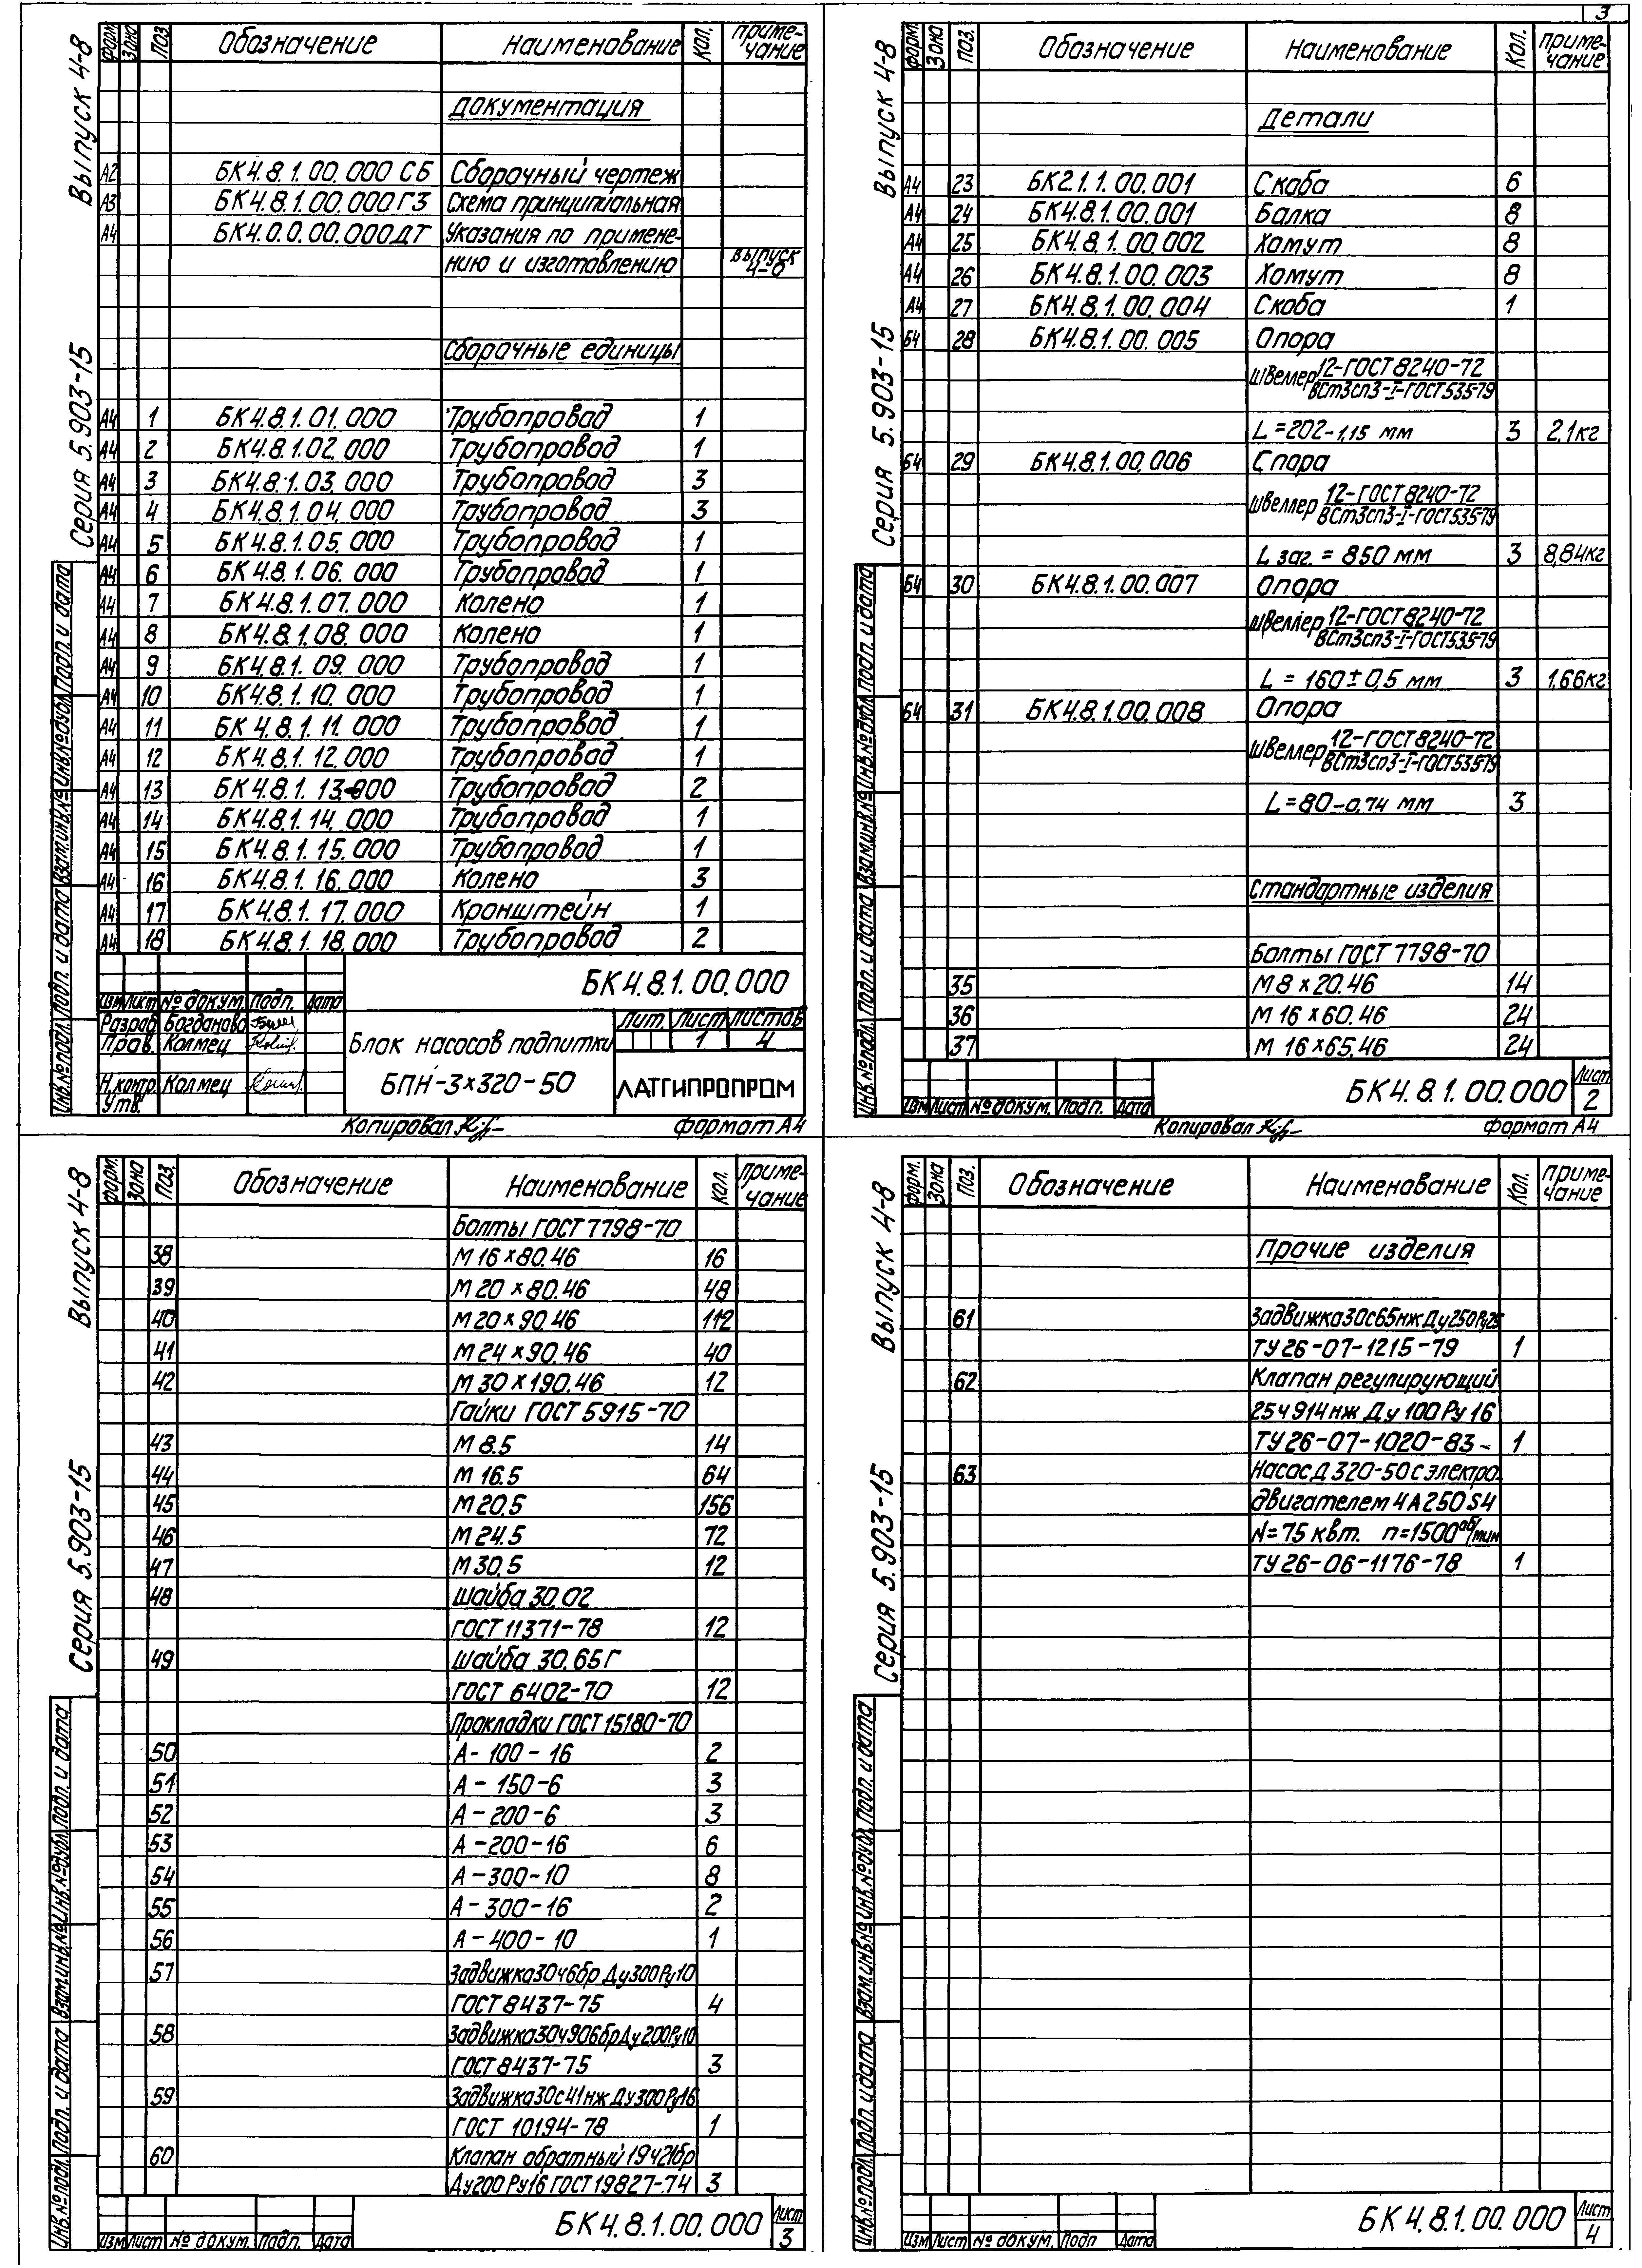 3
Выпуск 4-8
Серия 5.903-15
Форм. Зона Поз. Обозначение Наименование Кол. Приме-
чание
Документация
А2 БК4.8.1.00.000 СБ Сборочный чертеж
А3 БК4.8.1.00.000 Г3 Схема принципиальная
А4 БК4.0.0.00.000 ДТ Указания по примене-
нию и изготовлению выпуск
4-0
Сборочные единицы
А4 1 БК4.8.1.01.000 Трубопровод 1
А4 2 БК4.8.1.02.000 Трубопровод 1
А4 3 БК4.8.1.03.000 Трубопровод 3
А4 4 БК4.8.1.04.000 Трубопровод 3
А4 5 БК4.8.1.05.000 Трубопровод 1
А4 6 БК4.8.1.06.000 Трубопровод 1
А4 7 БК4.8.1.07.000 Колено 1
А4 8 БК4.8.1.08.000 Колено 1
А4 9 БК4.8.1.09.000 Трубопровод 1
А4 10 БК4.8.1.10.000 Трубопровод 1
А4 11 БК4.8.1.11.000 Трубопровод 1
А4 12 БК4.8.1.12.000 Трубопровод 1
А4 13 БК4.8.1.13.000 Трубопровод 2
А4 14 БК4.8.1.14.000 Трубопровод 1
А4 15 БК4.8.1.15.000 Трубопровод 1
А4 16 БК4.8.1.16.000 Колено 3
А4 17 БК4.8.1.17.000 Кронштейн 1
А4 18 БК4.8.1.18.000 Трубопровод 2
Инв.№ подл. Подп. и дата Взам.инв.№ Инв.№ дубл. Подп. и дата
БК4.8.1.00.000
Изм Лист № докум. Подп. Дата
Разраб. Богданова
Пров. Колмец
Н.контр. Колмец
Утв.
Блок насосов подпитки
БПН-3×320-50
Лит. Лист Листов
1 4
ЛАТГИПРОПРОМ
Копировал Формат А4
Выпуск 4-8
Серия 5.903-15
Форм. Зона Поз. Обозначение Наименование Кол. Приме-
чание
Детали
А4 23 БК2.1.1.00.001 Скоба 6
А4 24 БК4.8.1.00.001 Балка 8
А4 25 БК4.8.1.00.002 Хомут 8
А4 26 БК4.8.1.00.003 Хомут 8
А4 27 БК4.8.1.00.004 Скоба 1
Б4 28 БК4.8.1.00.005 Опора
Швеллер 12-ГОСТ 8240-72
ВСт3сп3-I-ГОСТ535-79
L=202-1,15 мм 3 2,1кг
Б4 29 БК4.8.1.00.006 Опора
Швеллер 12-ГОСТ 8240-72
ВСт3сп3-I-ГОСТ535-79
L заг. = 850 мм 3 8,84кг
Б4 30 БК4.8.1.00.007 Опора
Швеллер 12-ГОСТ 8240-72
ВСт3сп3-I-ГОСТ535-79
L = 160±0,5 мм 3 1,66кг
Б4 31 БК4.8.1.00.008 Опора
Швеллер 12-ГОСТ 8240-72
ВСт3сп3-I-ГОСТ535-79
L=80-0,74 мм 3
Стандартные изделия
Болты ГОСТ 7798-70
35 М8×20.46 14
36 М16×60.46 24
37 М16×65.46 24
Инв.№ подл. Подп. и дата Взам.инв.№ Инв.№ дубл. Подп. и дата
Изм Лист № докум. Подп. Дата БК4.8.1.00.000 Лист
2
Копировал Формат А4
Выпуск 4-8
Серия 5.903-15
Форм. Зона Поз. Обозначение Наименование Кол. Приме-
чание
Болты ГОСТ 7798-70
38 М16×80.46 16
39 М20×80.46 48
40 М20×90.46 112
41 М24×90.46 40
42 М30×190.46 12
Гайки ГОСТ 5915-70
43 М8.5 14
44 М16.5 64
45 М20.5 156
46 М24.5 72
47 М30.5 12
48 Шайба 30.02
ГОСТ 11371-78 12
49 Шайба 30.65Г
ГОСТ 6402-70 12
Прокладки ГОСТ 15180-70
50 А-100-16 2
51 А-150-6 3
52 А-200-6 3
53 А-200-16 6
54 А-300-10 8
55 А-300-16 2
56 А-400-10 1
57 Задвижка30ч6бр Ду300Ру10
ГОСТ 8437-75 4
58 Задвижка30ч906брДу200Ру10
ГОСТ 8437-75 3
59 Задвижка30с41нж Ду300Ру16
ГОСТ 10194-78 1
60 Клапан обратный 19ч21бр
Ду200 Ру16 ГОСТ 19827-74 3
Инв.№ подл. Подп. и дата Взам.инв.№ Инв.№ дубл. Подп. и дата
Изм Лист № докум. Подп. Дата БК4.8.1.00.000 Лист
3
Выпуск 4-8
Серия 5.903-15
Форм. Зона Поз. Обозначение Наименование Кол. Приме-
чание
Прочие изделия
61 Задвижка30с65нж Ду250Ру25
ТУ26-07-1215-79 1
62 Клапан регулирующий
25ч914нж Ду 100 Ру 16
ТУ26-07-1020-83 1
63 Насос Д320-50 с электро-
двигателем 4А250S4
N=75 квт. n=1500 об/мин
ТУ26-06-1176-78 1
Инв.№ подл. Подп. и дата Взам.инв.№ Инв.№ дубл. Подп. и дата
Изм Лист № докум. Подп Дата БК4.8.1.00.000 Лист
4